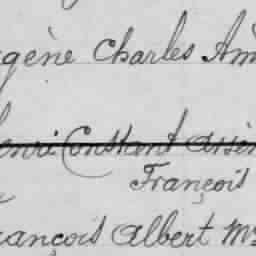 gène Charles Am
enri Constant Arsèn
François
ançois Albert M